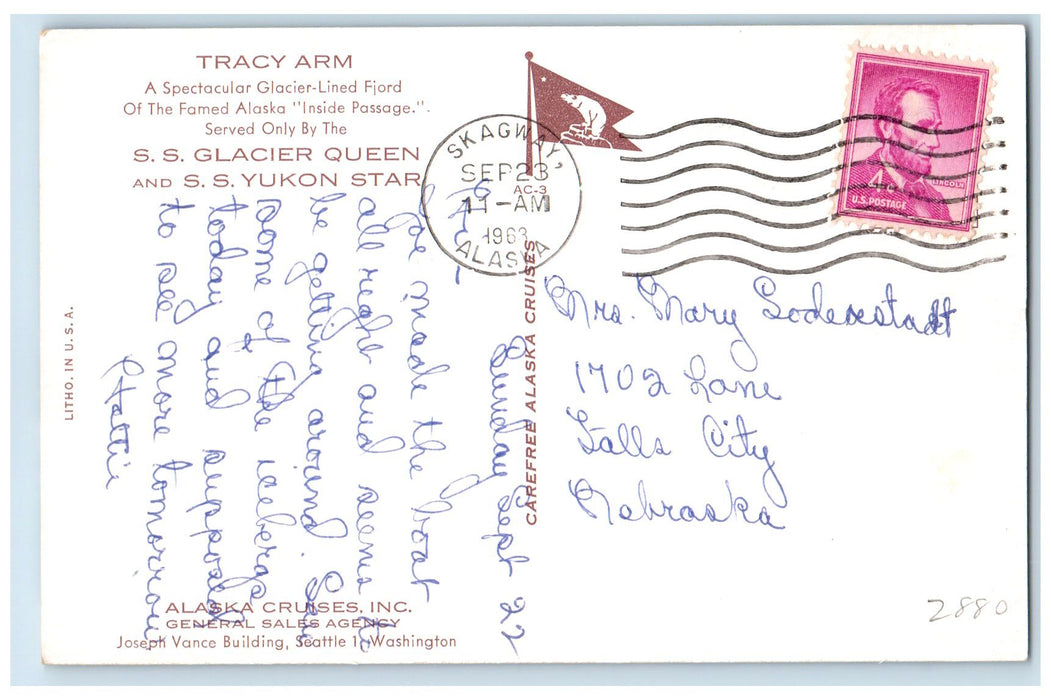 TRACY ARM
A Spectacular Glacier-Lined Fjord
Of The Famed Alaska "Inside Passage."
Served Only By The
S. S. GLACIER QUEEN
AND S. S. YUKON STAR
AC-3
SKAGWAY,
SEP 23
11-AM
1963
ALASKA
4¢
LINCOLN
U.S. POSTAGE
LITHO. IN U. S. A.
Sunday Sept 22
We made the boat
all right and seems to
be getting around. Saw
some of the icebergs
today and supposed
to see more tomorrow
Hattie
CAREFREE ALASKA CRUISES
Mrs. Mary Soderstadt
1702 Lane
Falls City
Nebraska
2880
ALASKA CRUISES, INC.
GENERAL SALES AGENCY
Joseph Vance Building, Seattle 1, Washington